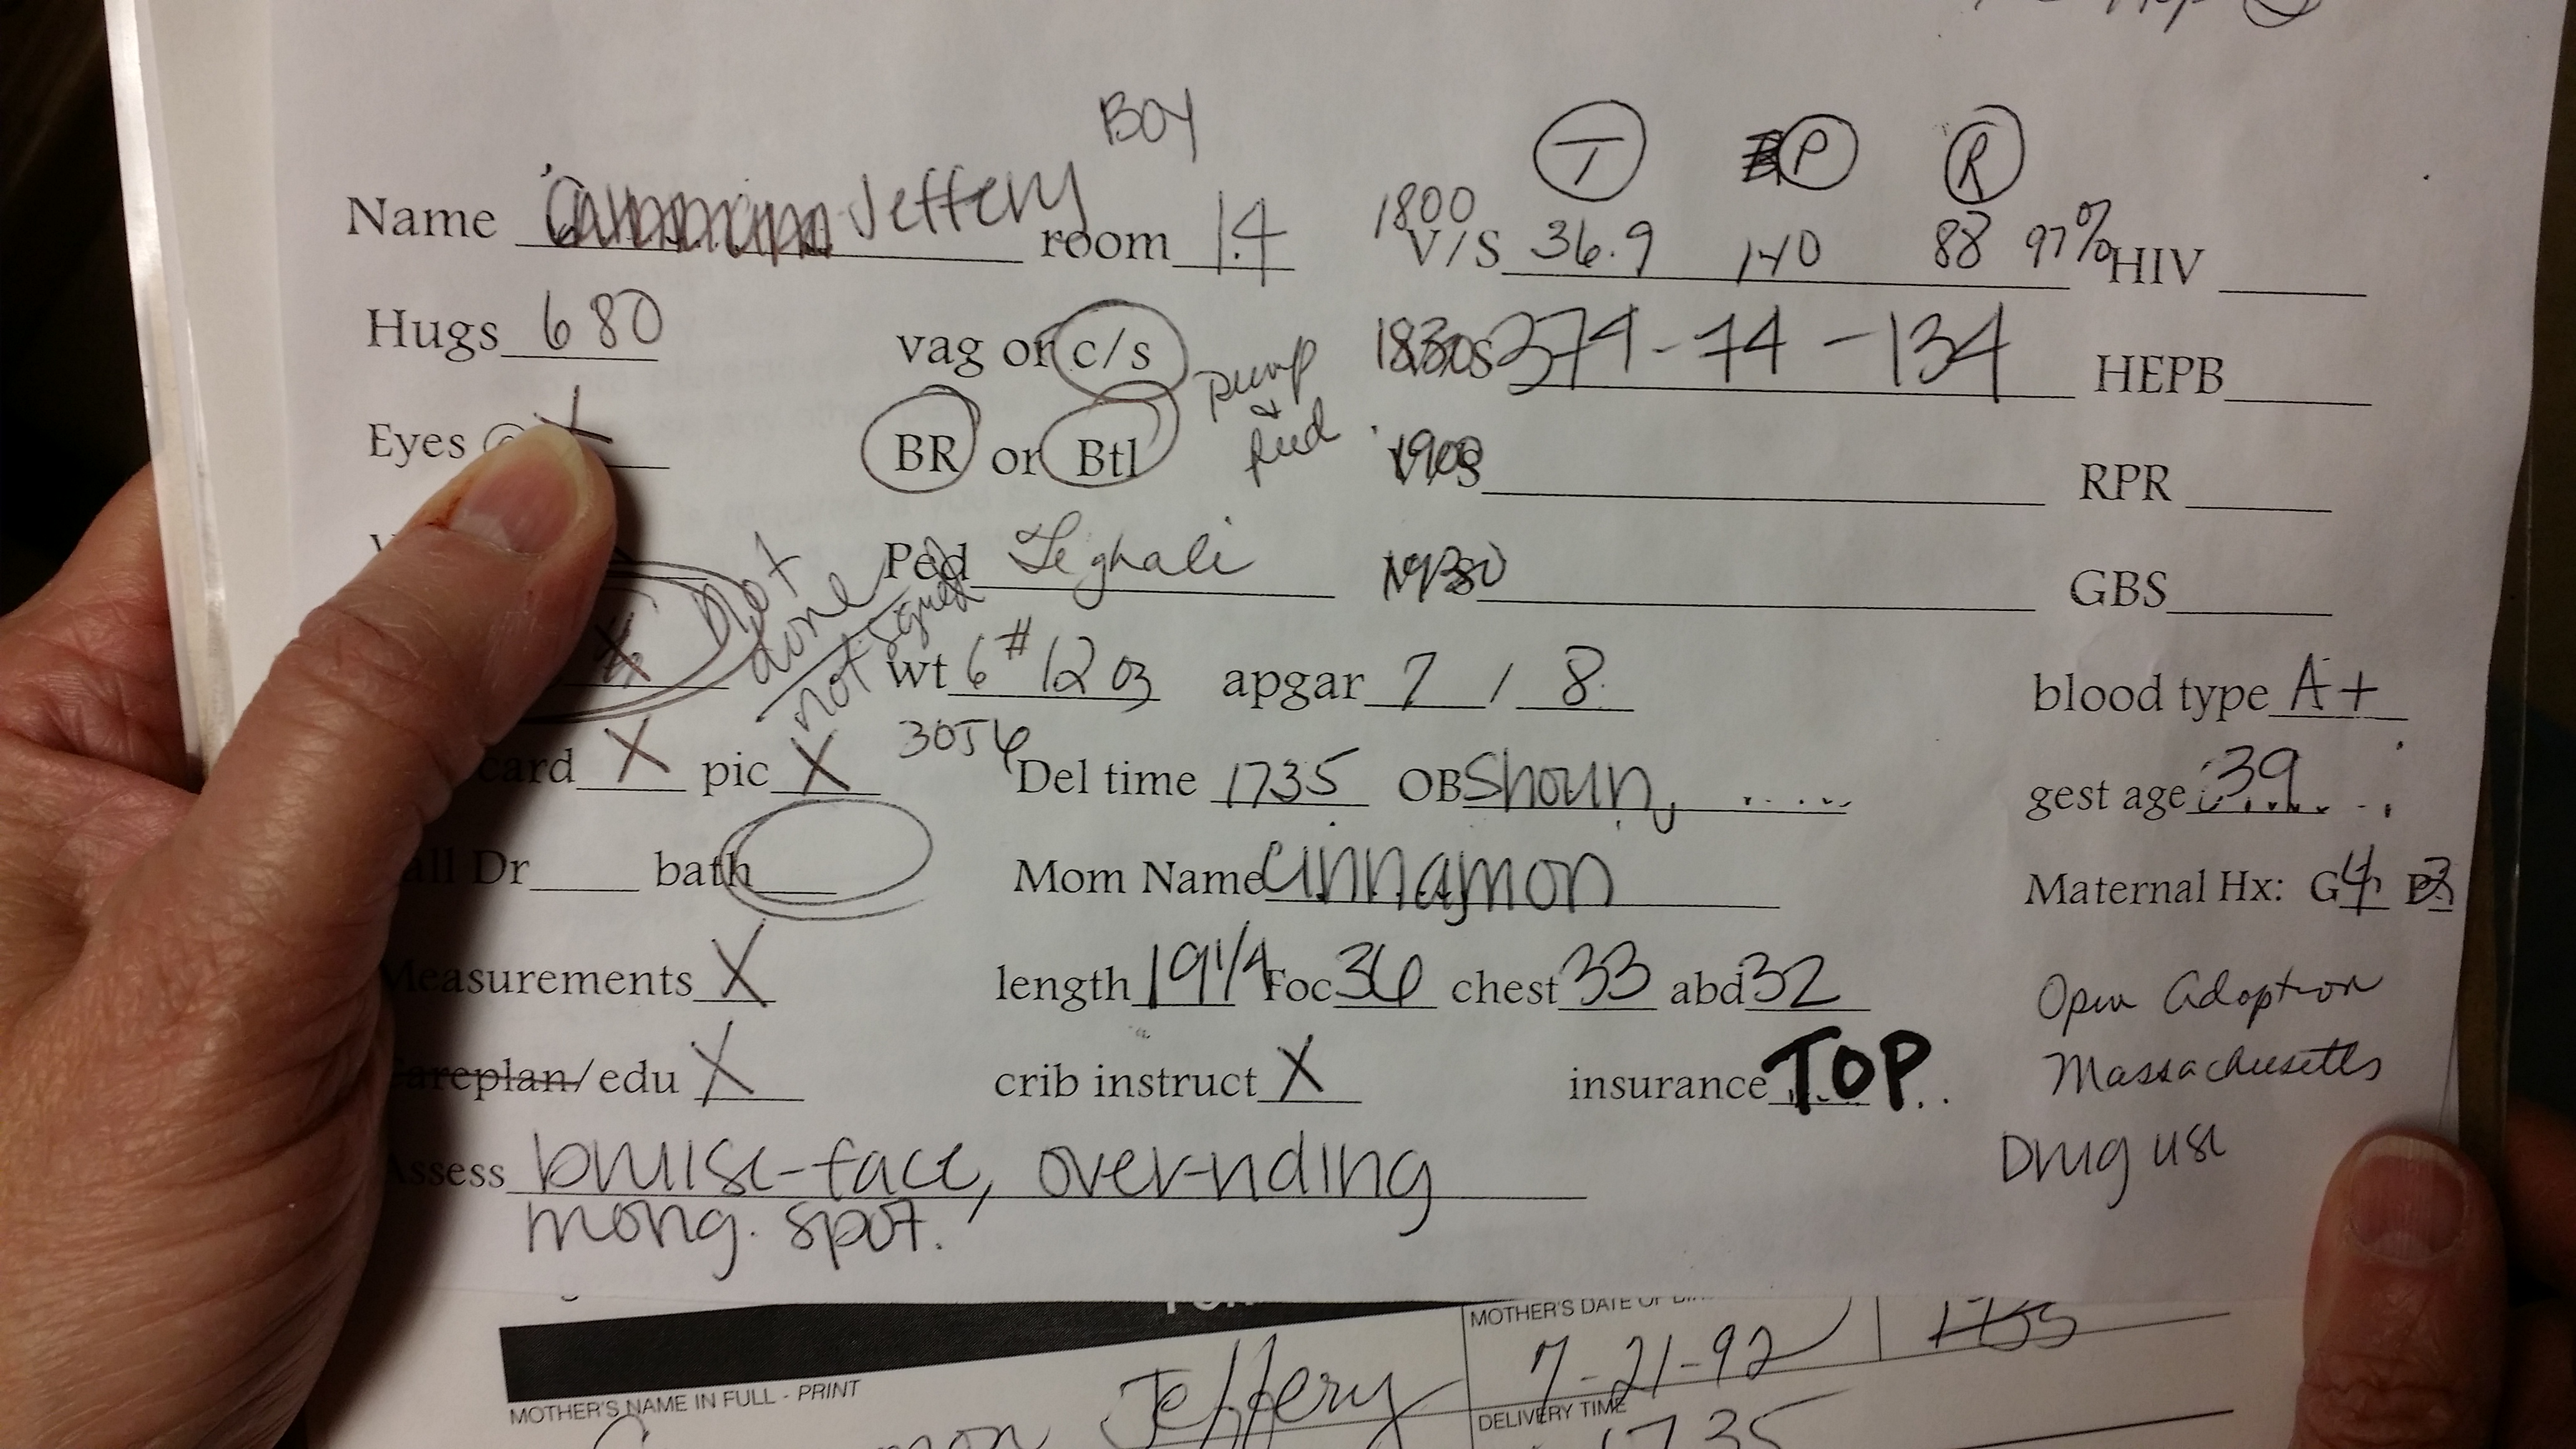 BOY
T P R
Name Jeffery room 14 1800 V/S 36.9 140 88 97% HIV
Hugs 680 vag or c/s 1830 374-74-134 HEPB
pump & feed
Eyes BR or Btl 1900 RPR
Not done
not signed
Ped Teghali 1930 GBS
wt 6# 12 oz apgar 7 / 8 blood type A+
3056
card X pic X Del time 1735 OB Shoun gest age 39
all Dr bath Mom Name Cinnamon Maternal Hx: G4 P3
Measurements X length 19 1/4 Foc 36 chest 33 abd 32
Open Adoption
Massachusetts
Careplan/edu X crib instruct X insurance TOP
Drug use
Assess bruise-face, over-riding
mong. spot.
MOTHER'S DATE OF
7-21-92 1735
MOTHER'S NAME IN FULL - PRINT
Jeffery
DELIVERY TIME
1735